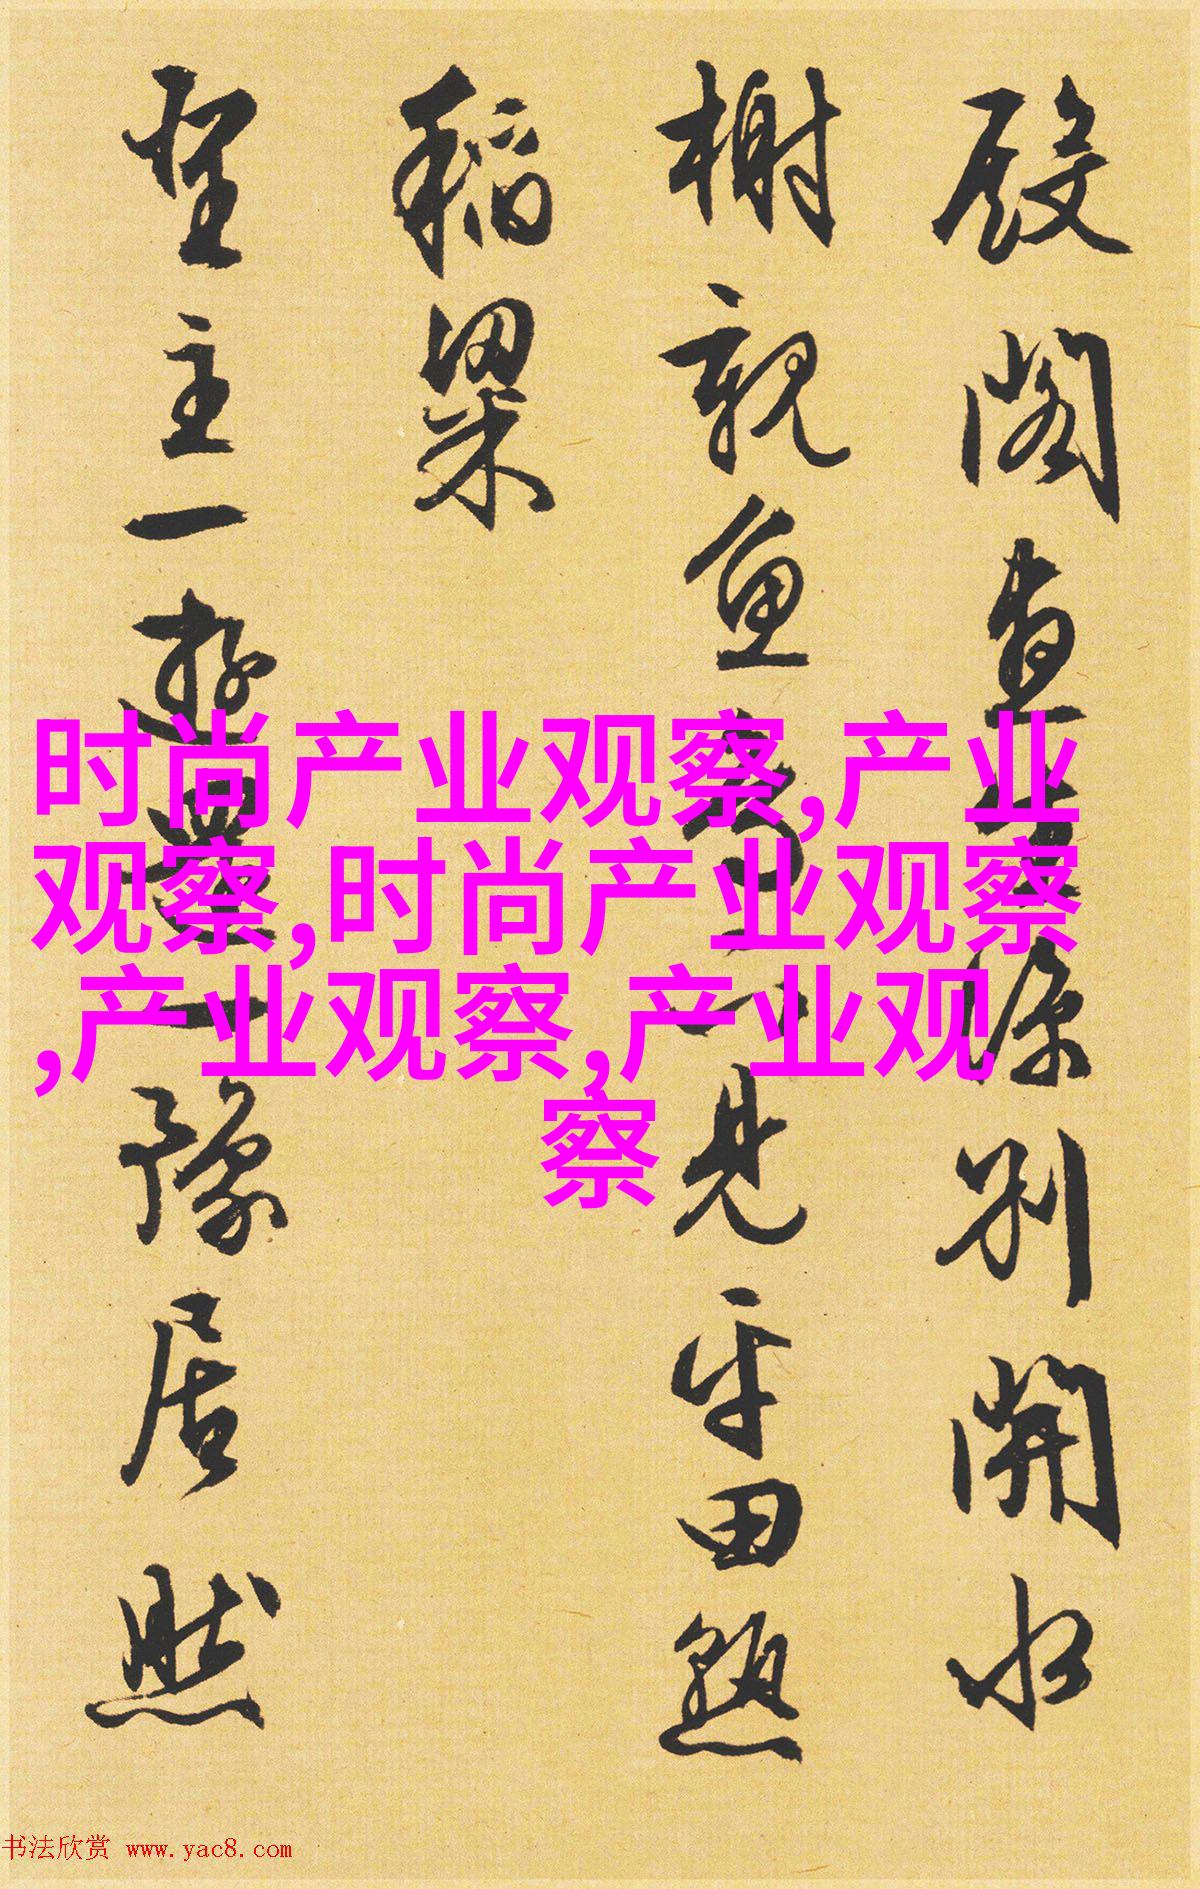 殿閣別開水
榭觀魚見平田熟
稻粱
聖主一遊還一豫居然
时尚产业观察,产业
观察,时尚产业观察
,产业观察,产业观
察
书法欣赏 www.yac8.com